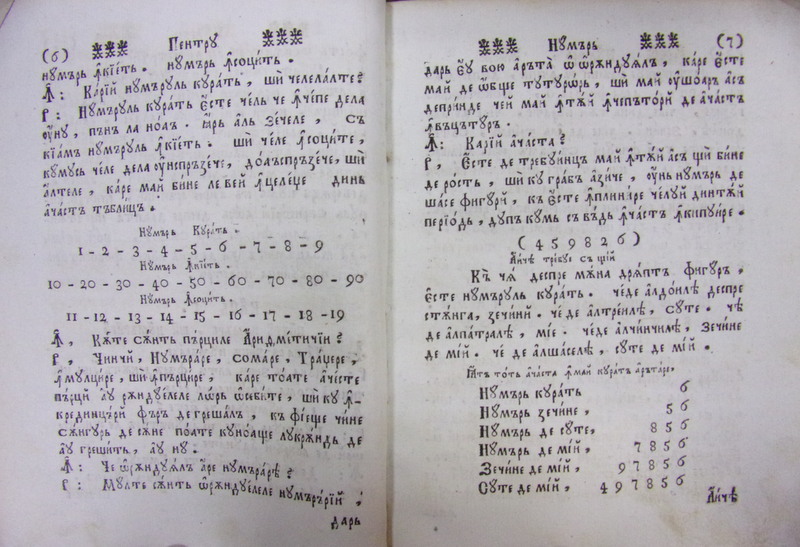 (6) Пентру
нꙋмъръ ꙟкїетъ. нꙋмъръ ꙟсоцитъ.
Ꙟ: Карїй нꙋмърꙋль кꙋратъ, шй челелалте?
Р: Нꙋмърꙋль кꙋратъ єсте чель че ꙟчепе дела
ꙋнꙋ, пѫнъ ла ноаъ. ꙗръ аль зечеле, съ
кїамъ нꙋмърꙋль ꙟкїетъ. шй челе ꙟсоците,
кꙋмꙋсъ челе дела ꙋнспръзече, доаъспръзече, шй
алтеле, каре май бине ле вей ꙟцелеџе динъ
ачастъ тъблицъ.
Нꙋмъръ Кꙋратъ.
1 - 2 - 3 - 4 - 5 - 6 - 7 - 8 - 9
Нꙋмъръ ꙟкїетъ.
10 - 20 - 30 - 40 - 50 - 60 - 70 - 80 - 90
Нꙋмъръ ꙟсоцитъ.
11 - 12 - 13 - 14 - 15 - 16 - 17 - 18 - 19
Ꙟ, Кѫте сѫнтъ пърциле Арид̾мѣтичїи?
Р, Чинчй, Нꙋмъраре, сомаре, Траџере,
ꙟмꙋлцире, шй ꙟпърцире, каре тоате ачесте
пърци аꙋ ржндꙋелеле лѡръ ѡсебите, шй кꙋ ꙟ-
крединцърй фъръ де грешалъ, къ фїеще чине
сѫгꙋръ де сѫне поате кꙋноаще лꙋкрѫндъ де
аꙋ грешитъ, аꙋ нꙋ.
Ꙟ: Че ѡрѫндꙋꙗлъ аре нꙋмърарѣ?
Р: Мꙋлте сѫнтъ ѡрѫндꙋелеле нꙋмърърїй,
даръ
Нꙋмъръ (7)
даръ єꙋ вою аръта ѡ ѡрѫндꙋꙗлъ, каре єсте
май де ѡбще тꙋтꙋрѡръ, шй май ꙋшоаръ асъ
деприnде чей май ꙟтѫй ꙟчепъторй де ачастъ
ꙟвъцътꙋръ.
Ꙟ: Карїй ачаста?
Р, Єсте де требꙋинцъ май ꙟтѫй асъ щй бине
де ростъ, шй кꙋ грабъ азиче, ꙋнь нꙋмъръ де
шасе фигꙋрй, къ єсте ꙟплинире челꙋй динтѫй
перїодъ, дꙋпъ кꙋмъ съ веде ꙟчастъ ꙟкипꙋире.
( 4 5 9 8 2 6 )
Аичѣ требꙋе съ щїй
Къ чѣ деспре мѫна дрѣптъ фигꙋръ,
єсте нꙋмърꙋль кꙋратъ. чеде алдоиле деспре
стѫнга, зечинй. че де алтреилѣ, сꙋте. че
де алпатралѣ, мїе. чеде алчинчилѣ, зечине
де мїй. че де алшаселѣ, сꙋте де мїй.
Ꙗтъ тотъ ачаста ꙟ май кꙋратъ арътаре,
Нꙋмъръ кꙋратъ 6
Нꙋмъръ зечине, 56
Нꙋмъръ де сꙋте, 856
Нꙋмъръ де мїй, 7856
Зечине де мїй, 97856
Сꙋте де мїй, 497856
Аичѣ